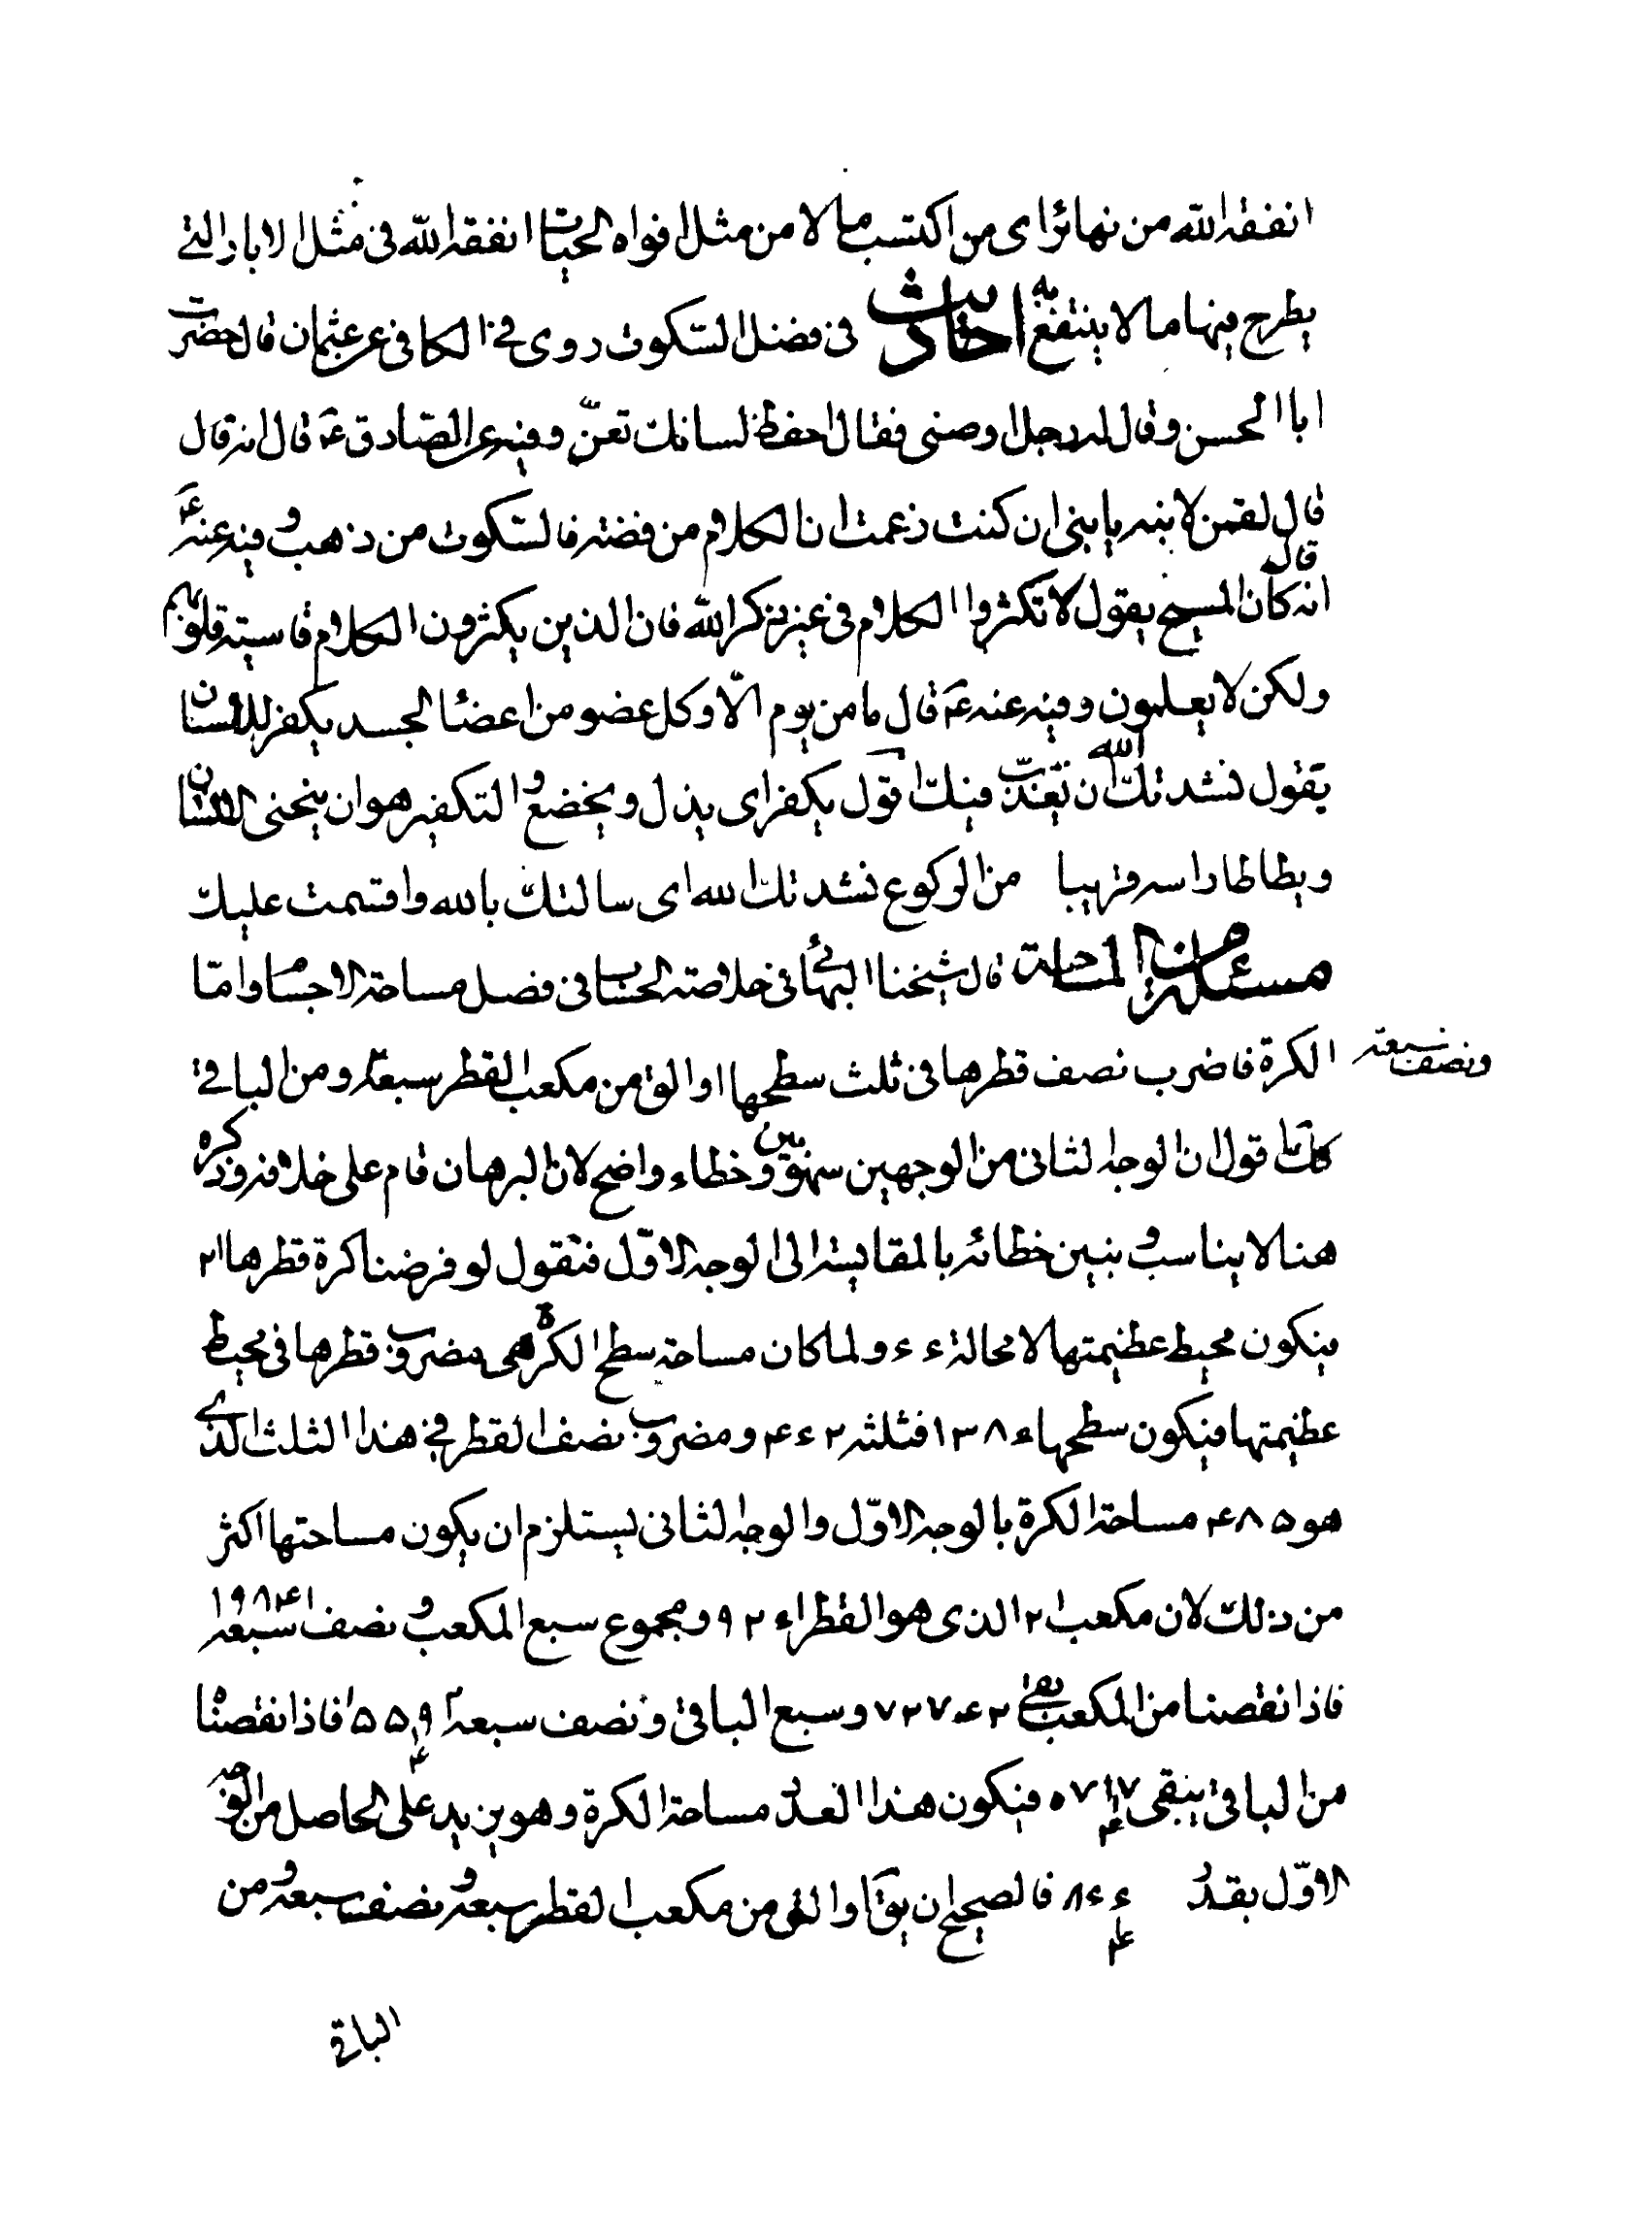 انفقه الله من نهائر اى من اكتسب مالا من مثل افواه الحيات انفقه الله فى مثل الابار التى
يطرح فيها ما لا ينتفع به احاديث فى فضل السكوت روى فى الكافى عن عثمان قال حضرت
ابا الحسن وقال له رجل اوصنى فقال احفظ لسانك تعزّ وفيه عن الصادق ع قال انه قال
قال لقمن لابنه يا بنى ان كنت زعمت ان الكلام من فضة فالسكوت من ذهب وفيه عنه ع
قال انه كان المسيح يقول لا تكثروا الكلام فى غير ذكر الله فان الذين يكثرون الكلام قاسية قلوبهم
ولكن لا يعلمون وفيه عنه ع قال ما من يوم الّا وكل عضو من اعضا الجسد يكفر للسان
يقول نشدتك الله ان نعذّب فيك اقول يكفر اى يذل ويخضع والتكفير هو ان ينحنى الانسان
ويطاطا راسه قريبا من الركوع نشدتك الله اى سالتك بالله واقسمت عليك
مسئلة من المساحة قال شيخنا البهائى فى خلاصة الحساب فى فصل مساحة الاجسام واما
الكرة فاضرب نصف قطرها فى ثلث سطحها او الق من مكعب القطر سبعه ومن الباقى
ونصف سبعه
كك اقول ان الوجه الثانى من الوجهين سهو بين وخطاء واضح لان البرهان قام على خلافه وذكره
هنا لا يناسب ونبين خطائه بالمقايسة الى الوجه الاوّل فنقول لو فرضنا كرة قطرها ٢١
فيكون محيط عظيمتها لا محالة ٤٤ ولما كان مساحة سطح الكرة هى مضروب قطرها فى محيط
عظيمتها فيكون سطحها ١٣٨٤ فثلثه ٤٤٢ ومضروب نصف القطر فى هذا الثلث الذى
هو ٤٨٥ مساحة الكرة بالوجه الاوّل والوجه الثانى يستلزم ان يكون مساحتها اكثر
من ذلك لان مكعب ٢١ الذى هو القطر ٩٢٤١ ومجموع سبع المكعب ونصف سبعه ١٩٨٤
فاذا نقصنا من المكعب بقى وسبع الباقى ونصف سبعه فاذا نقصناه
من الباقى يبقى فيكون هذا العدد مساحة الكرة وهو يزيد على الحاصل من الوجه
الاوّل بقدر فالصحيح ان يقال او الق من مكعب القطر سبعه ونصف سبعه ومن
الباقى